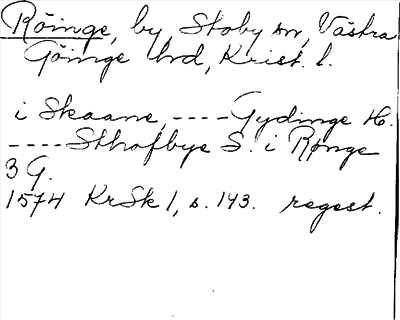 Röinge, by, Stoby sn, Västra
Göinge hrd, Krist. l.
i Skaane, ---- Gydinge H.
---- Sthofbye S. i Rønge
3 G.
1574 KrSk 1, s. 143. regest.